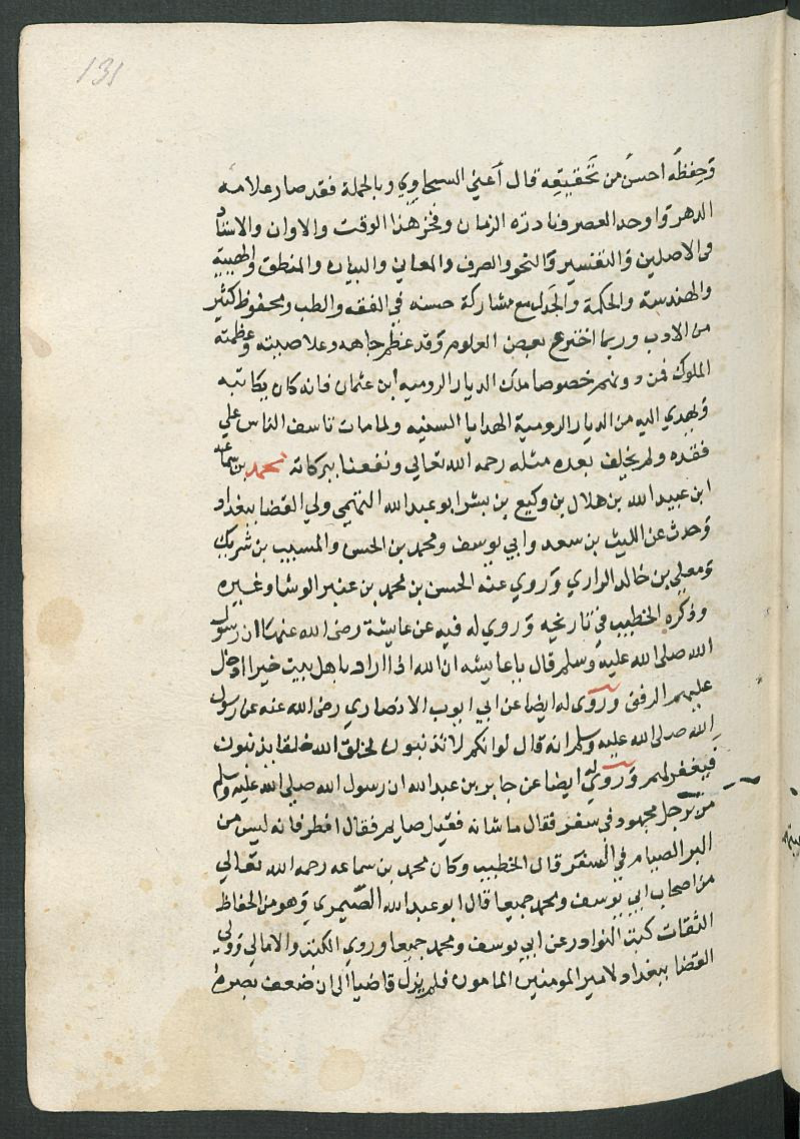 131
وحفظه احسن من تحقيقه قال أعني السخاوي وبالجملة فقد صار علامة
الدهر واوحد العصر ونادرة الزمان وفخر هذا الوقت والاوان والاستاد
في الاصلين والتفسير والنحو والصرف والمعاني والبيان والمنطق والهيية
والهندسة والحكمة والجدل مع مشاركة حسنه في الفقه والطب ومحفوظ كثير
من الادب وربما اخترع بعض العلوم وقد عظم جاهه وعلا صيته وعظمته
الملوك فمن دونهم خصوصا ملك الديار الروميه ابن عثمان فانه كان يكاتبه
ويهدي اليه من الديار الرومية الهدايا السنيه ولما مات تاسف الناس علي
فقده ولم يخلف بعده مثله رحمه الله تعالي ونفعنا ببركاته محمد بن سماعه
ابن عبيد الله بن هلال بن وكيع بن بشر ابو عبد الله التميمي ولي القضا ببغداد
وحدث عن الليث بن سعد وابي يوسف ومحمد بن الحسن والمسيب بن شريك
ومعلي بن خالد الرازي وروي عنه الحسن بن محمد بن عنبر الوشا وغيره
وذكره الخطيب في تاريخيه وروي له فيه عن عايشة رضى الله عنها ان رسول
الله صلى الله عليه وسلم قال يا عايشه ان الله اذا اراد باهل بيت خيرا ادخل
عليهم الرفق وروي له ايضا عن ابي ايوب الانصاري رضى الله عنه عن رسول
الله صلى الله عليه وسلم انه قال لو انكم لا تذنبون لخلق الله خلقا يذنبون
فيغفر لهم وروي له ايضا عن جابر بن عبد الله ان رسول الله صلى الله عليه وسلم
من برجل مجهود في سفر فقال ما شانه فقيل صايم فقال افطر فانه ليس من
البر الصيام في السفر قال الخطيب وكان محمد بن سماعه رحمه الله تعالي
من اصحاب ابي يوسف ومحمد جميعا قال ابو عبد الله الصيمري وهو من الحفاظ
الثقات كتب النوادر عن ابي يوسف ومحمد جميعا وروي الكتب والامالي وولي
القضا ببغداد لامير المومنين المامون فلم يزل قاضيا الى ان ضعف بصره